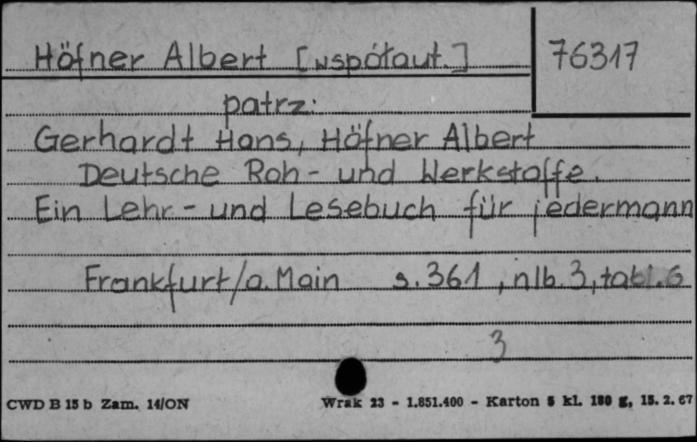 Höfner Albert [współaut.] 76317
patrz:
Gerhardt Hans, Höfner Albert
Deutsche Roh- und Werkstoffe.
Ein Lehr- und Lesebuch für jedermann
Frankfurt/a. Main s. 361, nlb. 3, tabl. 6
3
CWD B 15 b Zam. 14/ON Wrak 23 - 1.851.400 - Karton 5 kl. 180 g, 15. 2. 67